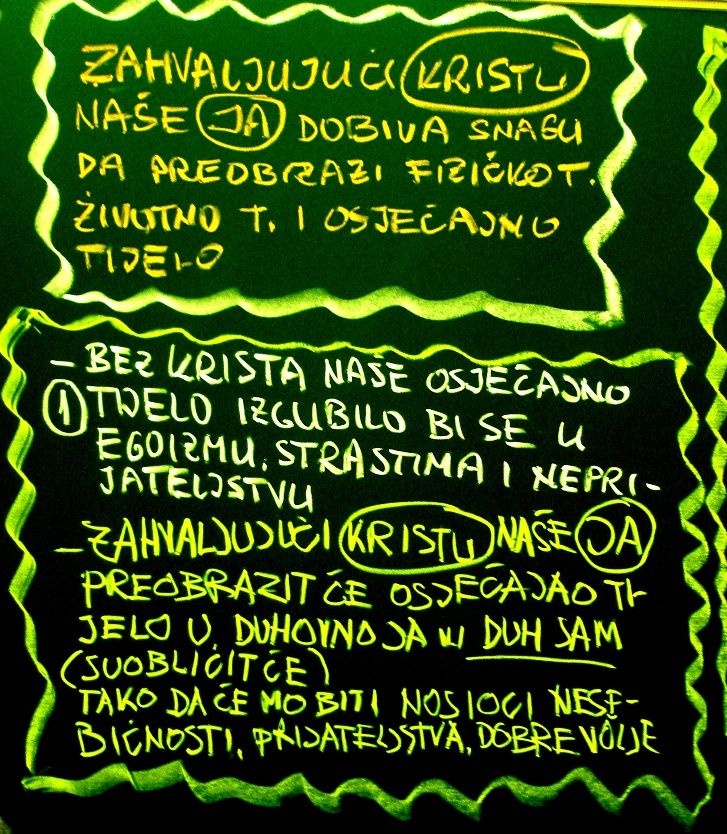 ZAHVALJUJUĆI KRISTU
NAŠE JA DOBIVA SNAGU
DA PREOBRAZI FIZIČKO T.
ŽIVOTNO T. I OSJEĆAJNO
TIJELO
– BEZ KRISTA NAŠE OSJEĆAJNO
1 TIJELO IZGUBILO BI SE U
EGOIZMU, STRASTIMA I NEPRI-
JATELJSTVU
– ZAHVALJUJUĆI KRISTU NAŠE JA
PREOBRAZIT ĆE OSJEĆAJNO TI-
JELO U DUHOVNO JA ILI DUH SAM
(SUOBLIČIT ĆE)
TAKO DA ĆEMO BITI NOSIOCI NESE-
BIČNOSTI, PRIJATELJSTVA, DOBRE VOLJE